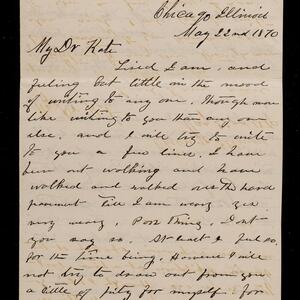 Chicago Illinois
May 22nd 1870
My Dr Kate
Tired I am, and
feeling but little in the mood
of writing to any one. Though more
like writing to you than any one
else, and I will try to write
to you a few lines. I have
been out walking and have
walked and walked over the hard
pavement till I am weary yes
very weary. Poor Thing, Dont
you say so. At least I feel so,
for the time being. However I will
not try to draw out from you
a little of pity for myself. For